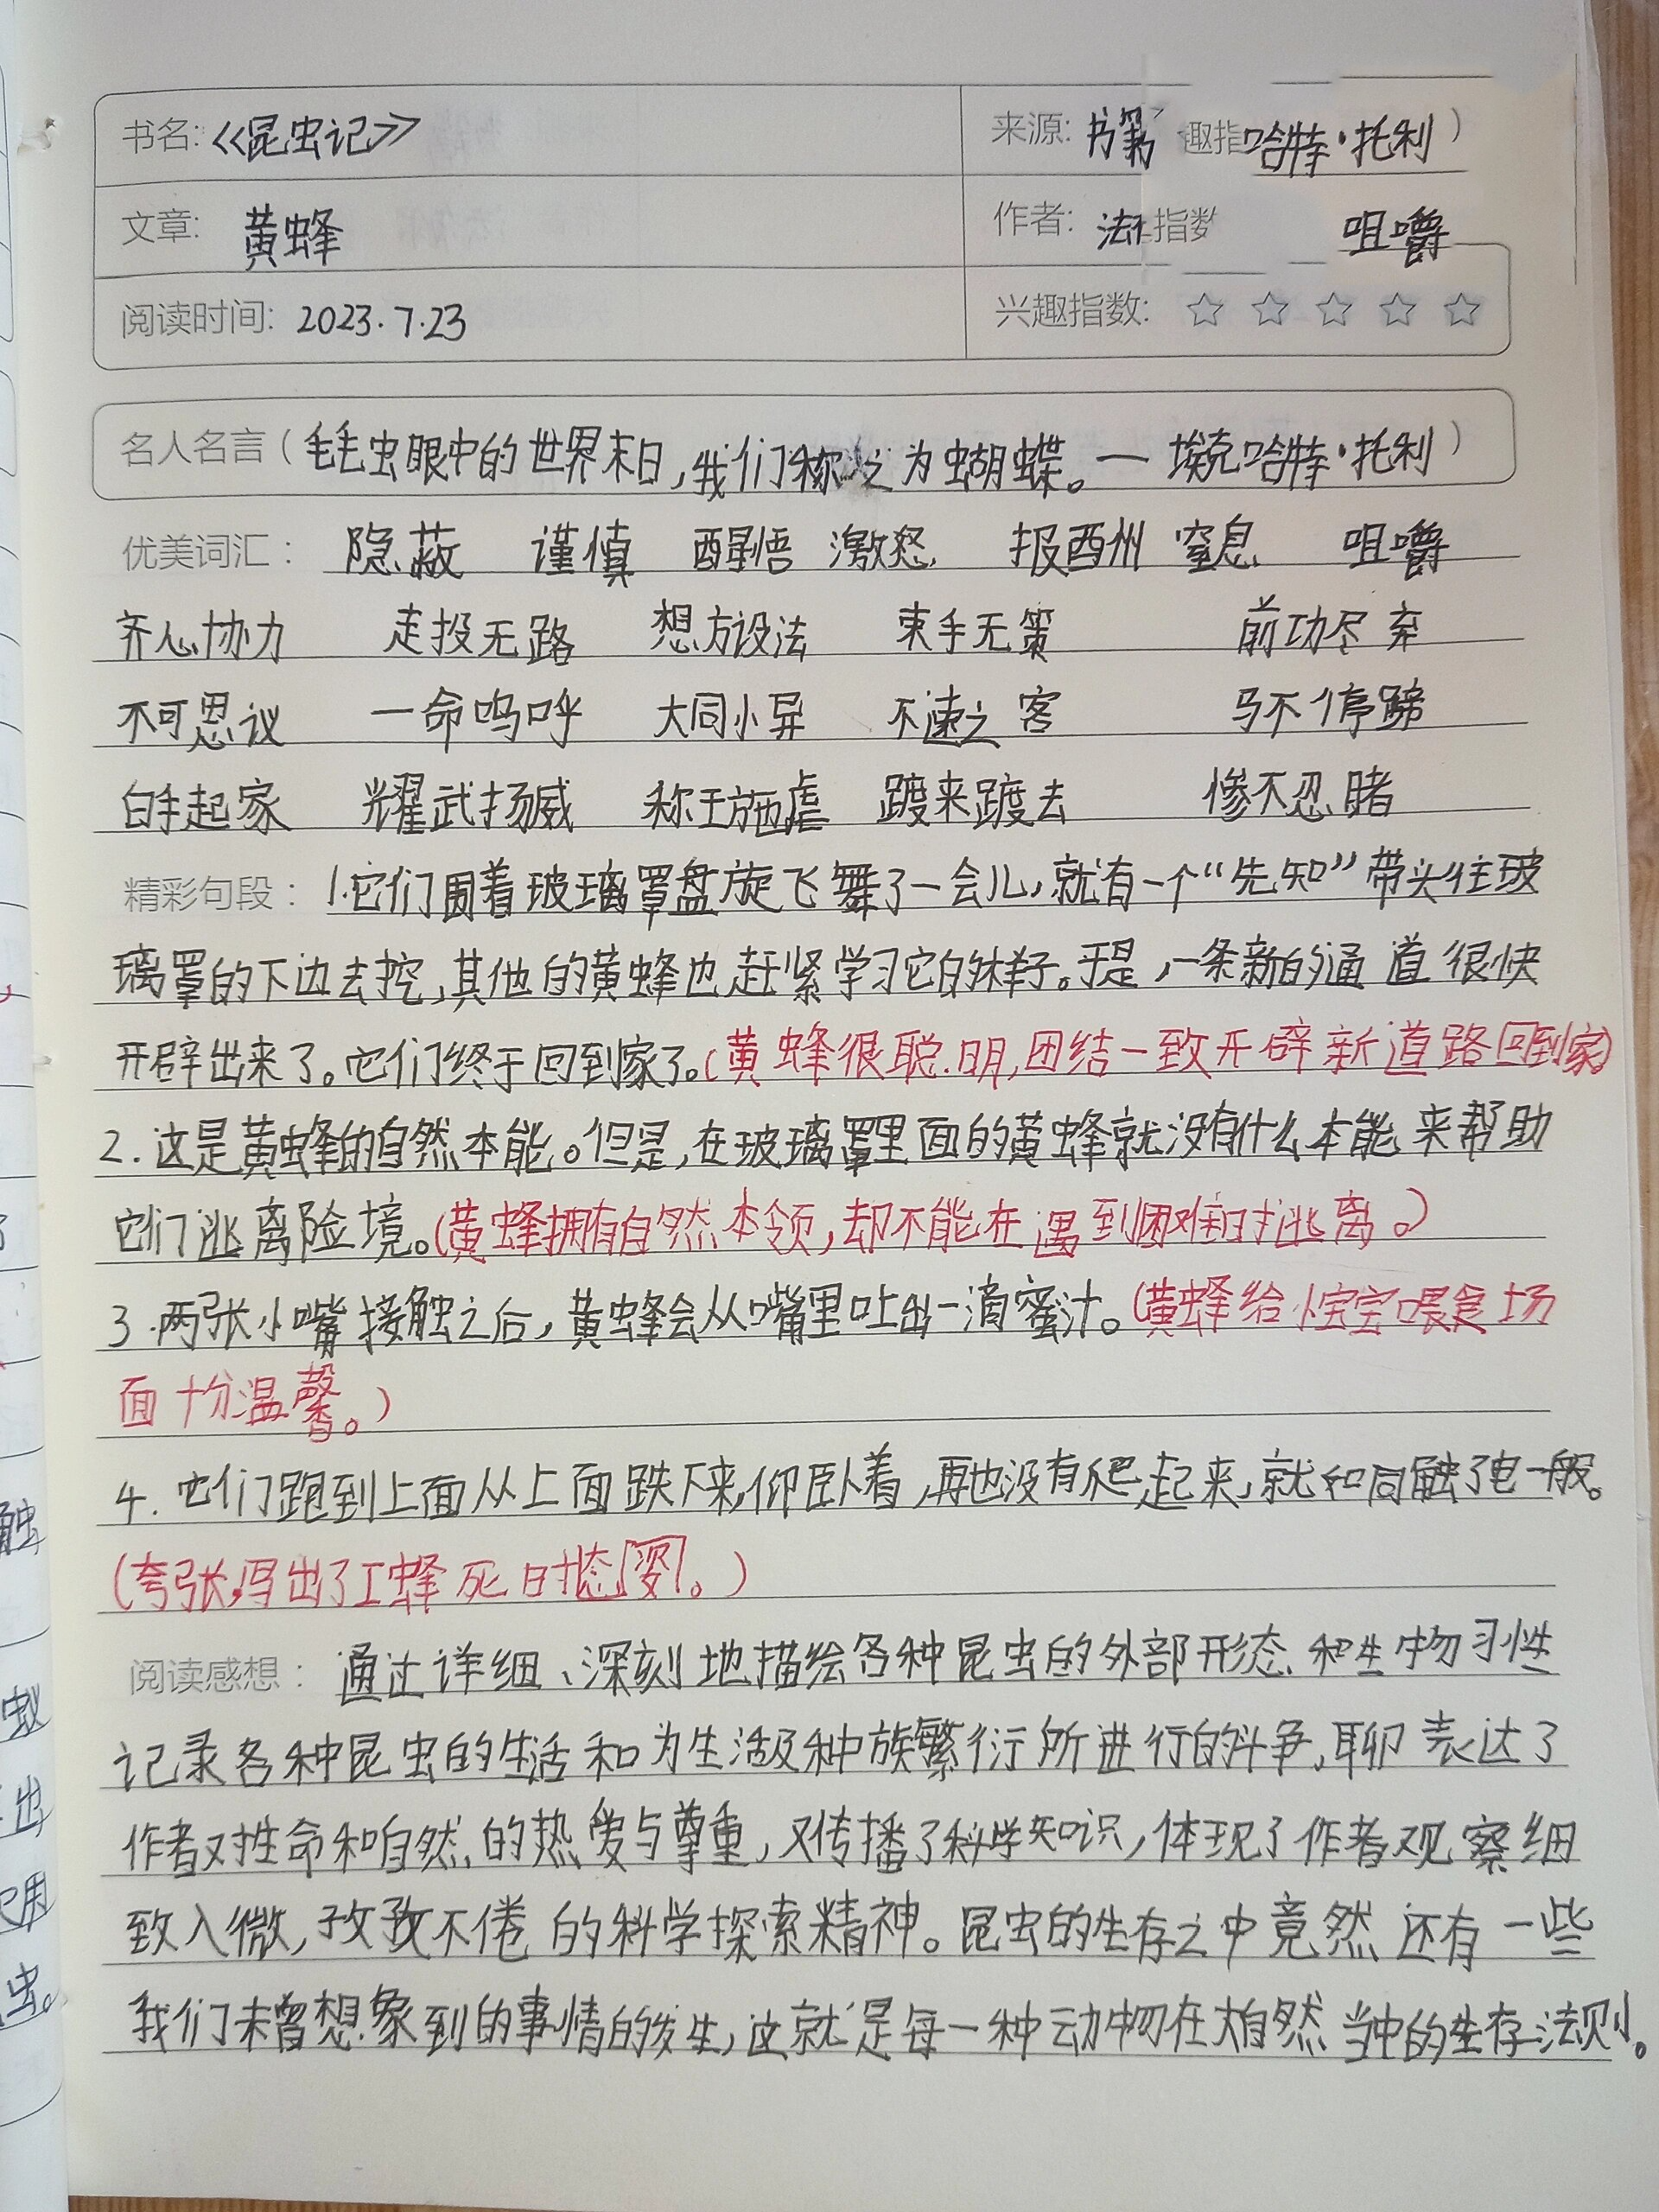 书名: 《昆虫记》 来源: 书籍 趣指 哈特·托利）
文章: 黄蜂 作者: 法 指数 咀嚼
阅读时间: 2023.7.23 兴趣指数: ☆ ☆ ☆ ☆ ☆
名人名言（毛毛虫眼中的世界末日,我们称之为蝴蝶。— 埃克哈特·托利）
优美词汇: 隐蔽 谨慎 醒悟 激怒 报酬 窒息 咀嚼
齐心协力 走投无路 想方设法 束手无策 前功尽弃
不可思议 一命呜呼 大同小异 不速之客 马不停蹄
白手起家 耀武扬威 称王施虐 踱来踱去 惨不忍睹
精彩句段: 1.它们围着玻璃罩盘旋飞舞了一会儿,就有一个“先知”带头往玻
璃罩的下边去挖,其他的黄蜂也赶紧学习它的样子。于是,一条新的通道很快
开辟出来了。它们终于回到家了。(黄蜂很聪明,团结一致开辟新道路回到家)
2.这是黄蜂的自然本能。但是,在玻璃罩里面的黄蜂就没有什么本能来帮助
它们逃离险境。(黄蜂拥有自然本领,却不能在遇到困难时逃离。)
3.两张小嘴接触之后,黄蜂会从嘴里吐出一滴蜜汁。(黄蜂给小宝宝喂食场
面十分温馨。)
4.它们跑到上面从上面跌下来,仰卧着,再也没有爬起来,就和同触了电一般。
(夸张,写出了工蜂死时态姿。)
阅读感想: 通过详细、深刻地描绘各种昆虫的外部形态和生物习性
记录各种昆虫的生活和为生活及种族繁衍所进行的斗争,聊表达了
作者对生命和自然的热爱与尊重,又传播了科学知识,体现了作者观察细
致入微,孜孜不倦的科学探索精神。昆虫的生存之中竟然还有一些
我们未曾想象到的事情的发生,这就是每一种动物在大自然当中的生存法则。
触
蚁
出
用
虫。